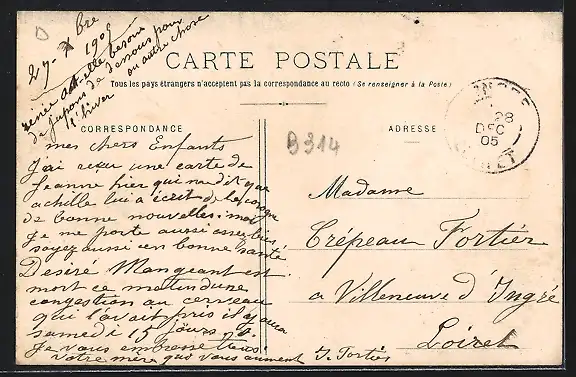 D
27 - X Bre
1905
reine a t elle besoin
de jupons de dessous pour
l'hiver ou autre chose
CARTE POSTALE
Tous les pays étrangers n'acceptent pas la correspondance au recto (Se renseigner à la Poste)
CORRESPONDANCE
ADRESSE
B314
INGRÉ
28
DEC
05
LOIRET
mes chers Enfants
J'ai reçu une carte de
Jeanne hier qui me dit que
achille lui a ecrit de
de bonne nouvelles. moi
je me porte aussi assez bien
soyez aussi en bonne santé
Desiré Mangeant est
mort ce matin d'une
congestion au cerveau
qui l'avait pris il y aura
samedi 15 jours
Je vous embresse tous.
votre mère que vous aiment J. Fortier
Madame
Crépeau Fortier
a Villeneuve d'Ingré
Loiret